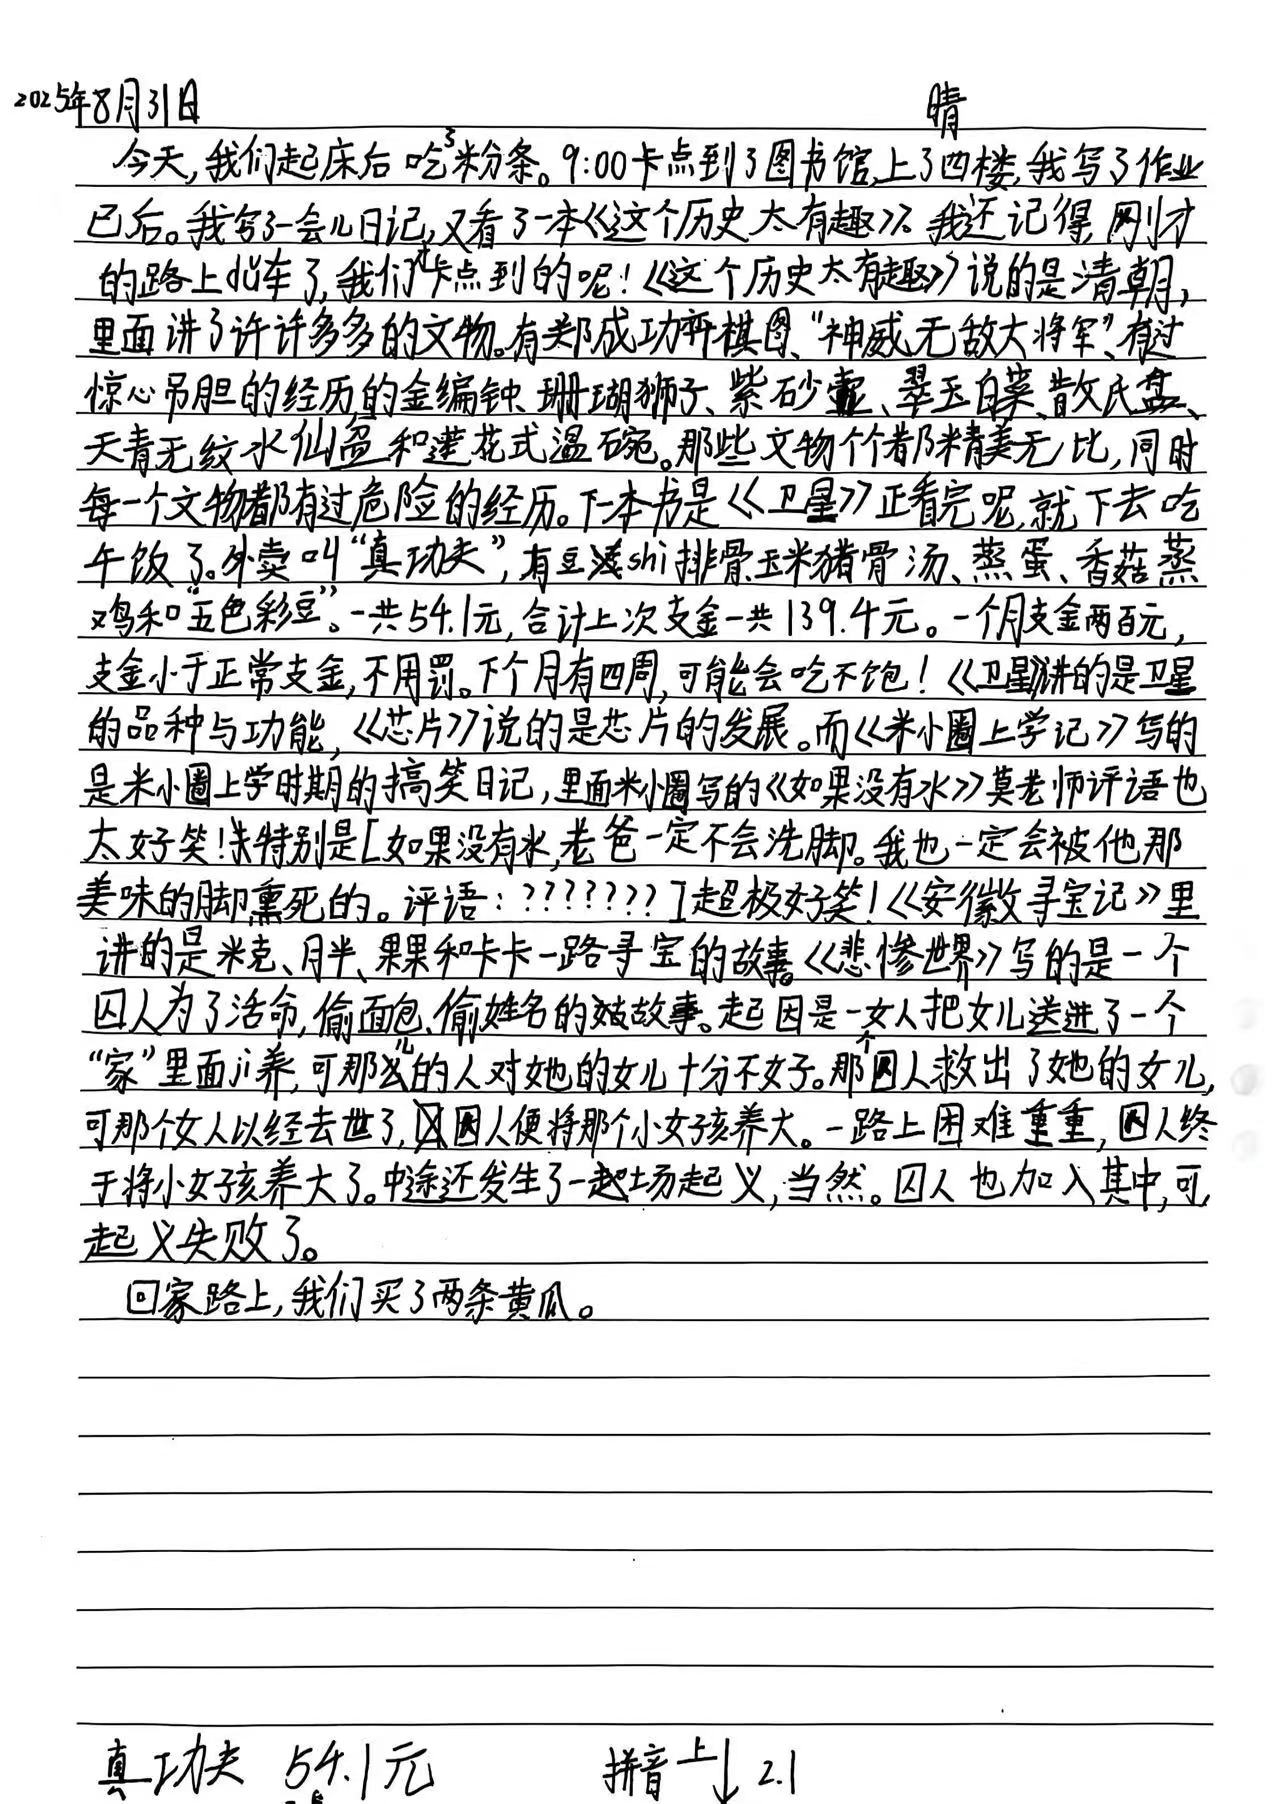 2025年8月31日 晴
今天,我们起床后吃了粉条。9:00卡点到了图书馆,上了四楼,我写了作业
已后。我写了一会儿日记,又看了一本《这个历史太有趣》。我还记得,刚才
的路上dǔ车了,我们才卡点到的呢!《这个历史太有趣》说的是清朝,
里面讲了许许多多的文物。有郑成功弈棋图、“神威无敌大将军”、有过
惊心吊胆的经历的金编钟、珊瑚狮子、紫砂壶、翠玉白菜、散氏盘、
天青无纹水仙盆和莲花式温碗。那些文物个个都精美无比,同时
每一个文物都有过危险的经历。下一本书是《卫星》正看完呢,就下去吃
午饭了。外卖叫“真功夫”,有豆shi排骨、玉米猪骨汤、蒸蛋、香菇蒸
鸡和“五色彩豆”。一共54.1元,合计上次支金一共139.4元。一个月支金两百元,
支金小于正常支金,不用罚。下个月有四周,可能会吃不饱!《卫星》讲的是卫星
的品种与功能,《芯片》说的是芯片的发展。而《米小圈上学记》写的
是米小圈上学时期的搞笑日记,里面米小圈写的《如果没有水》莫老师评语也
太好笑!特别是[如果没有水,老爸一定不会洗脚。我也一定会被他那
美味的脚熏死的。评语:???????]超极好笑!《安徽寻宝记》里
讲的是米克、月半、果果和卡卡一路寻宝的故事。《悲惨世界》写的是一个
囚人为了活命,偷面包、偷姓名的故事。起因是一女人把女儿送进了一个
“家”里面ji养,可那儿的人对她的女儿十分不好。那个囚人救出了她的女儿,
可那个女人以经去世了,囚人便将那个小女孩养大。一路上困难重重,囚人终
于将小女孩养大了。中途还发生了一场起义,当然。囚人也加入其中,可
起义失败了。
回家路上,我们买了两条黄瓜。
真功夫 54.1元 拼音上↓2.1